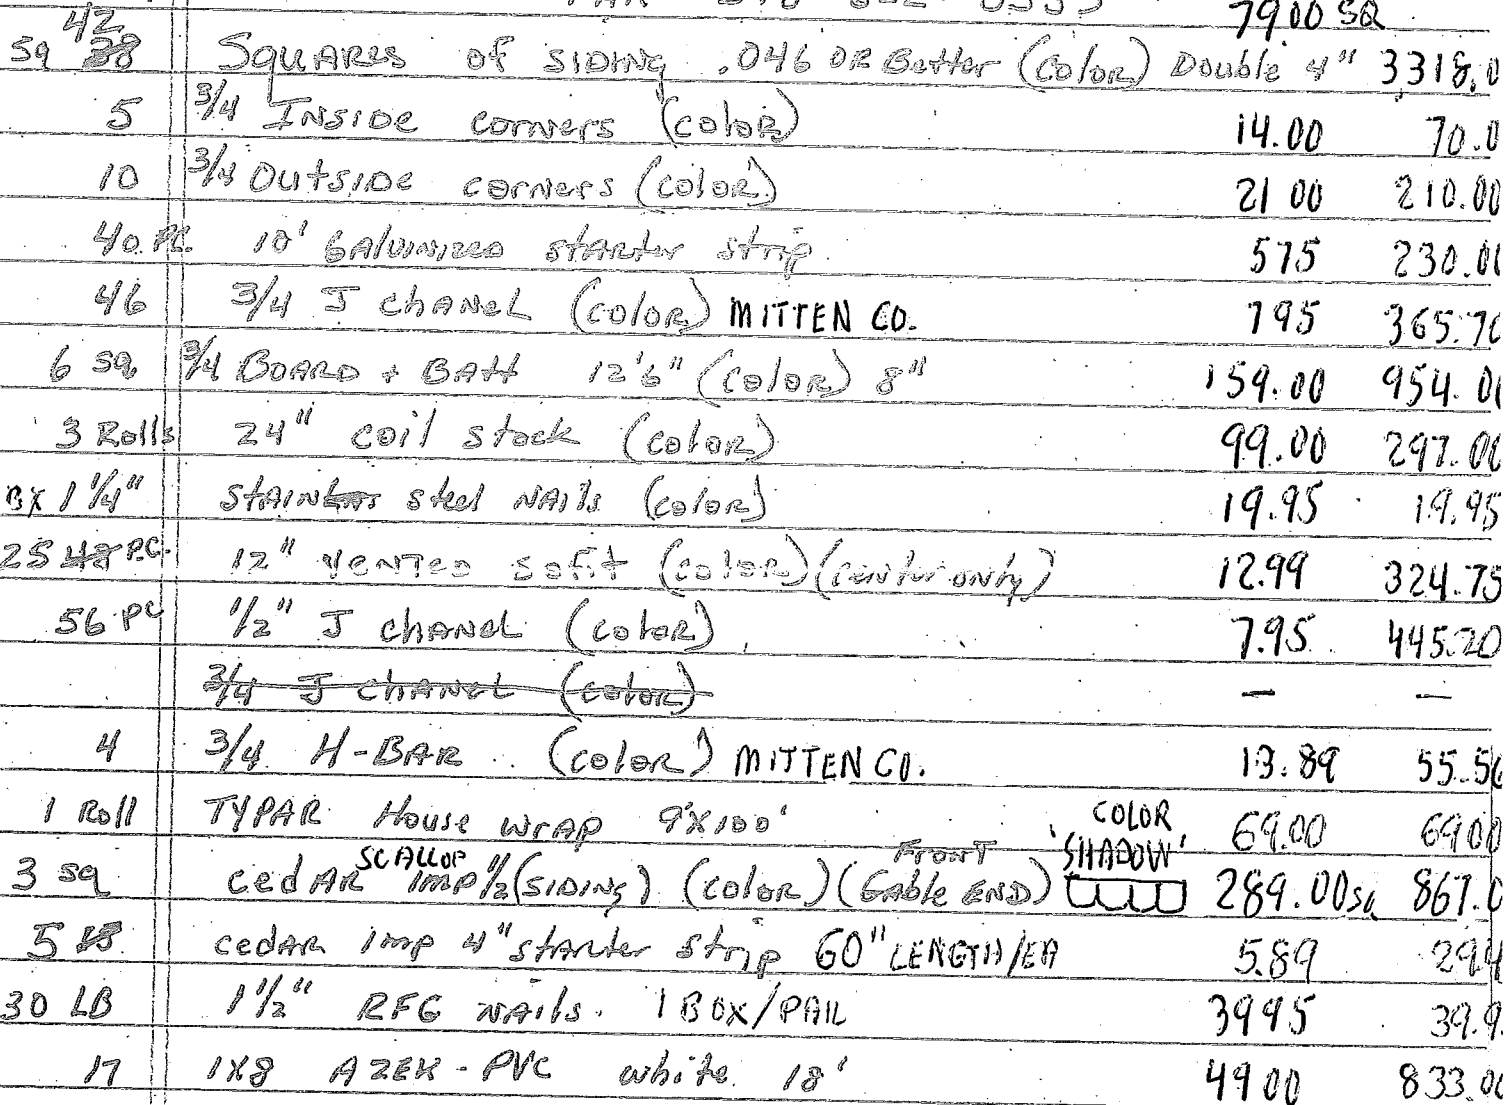 42 79.00 SQ
SQ 38 SQUARES OF SIDING .046 OR Better (COLOR) Double 4" 3318.0
5 3/4 INSIDE corners (COLOR) 14.00 70.0
10 3/4 OUtSIDE corners (COLOR) 21 00 210.00
40 PC. 10' GAlviNIZED starter strip 575 230.00
46 3/4 J chANEL (COLOR) MITTEN CO. 795 365.70
6 SQ 3/4 BOARD + BAtt 12'6" (COLOR) 8" 159.00 954.00
3 Rolls 24" coil stock (COLOR) 99.00 297.00
BX 1 1/4" STAINLess steel NAils (COLOR) 19.95 19.95
25 48 PC. 12" VENTED sofit (COLOR) (center only) 12.99 324.75
56 PC 1/2" J chANEL (COLOR) 7.95 445.20
3/4 J chANEL (COLOR) — —
4 3/4 H-BAR (COLOR) MITTEN CO. 13.89 55.56
1 Roll TYPAR House WrAP 9'X100' 69.00 69.00
COLOR
3 SQ cedAR SCALLOP IMP 1/2 (SIDING) (COLOR) (Front GABle END) 'SHADOW' 289.00 SQ 867.0
5 cedAR imp 4" starter strip 60" LENGTH/EA 5.89 29.4
30 LB 1 1/2" RFG NAils. 1 BOX/PAIL 3995 39.9
17 1X8 AZEK - PVC white 18' 4900 833.00